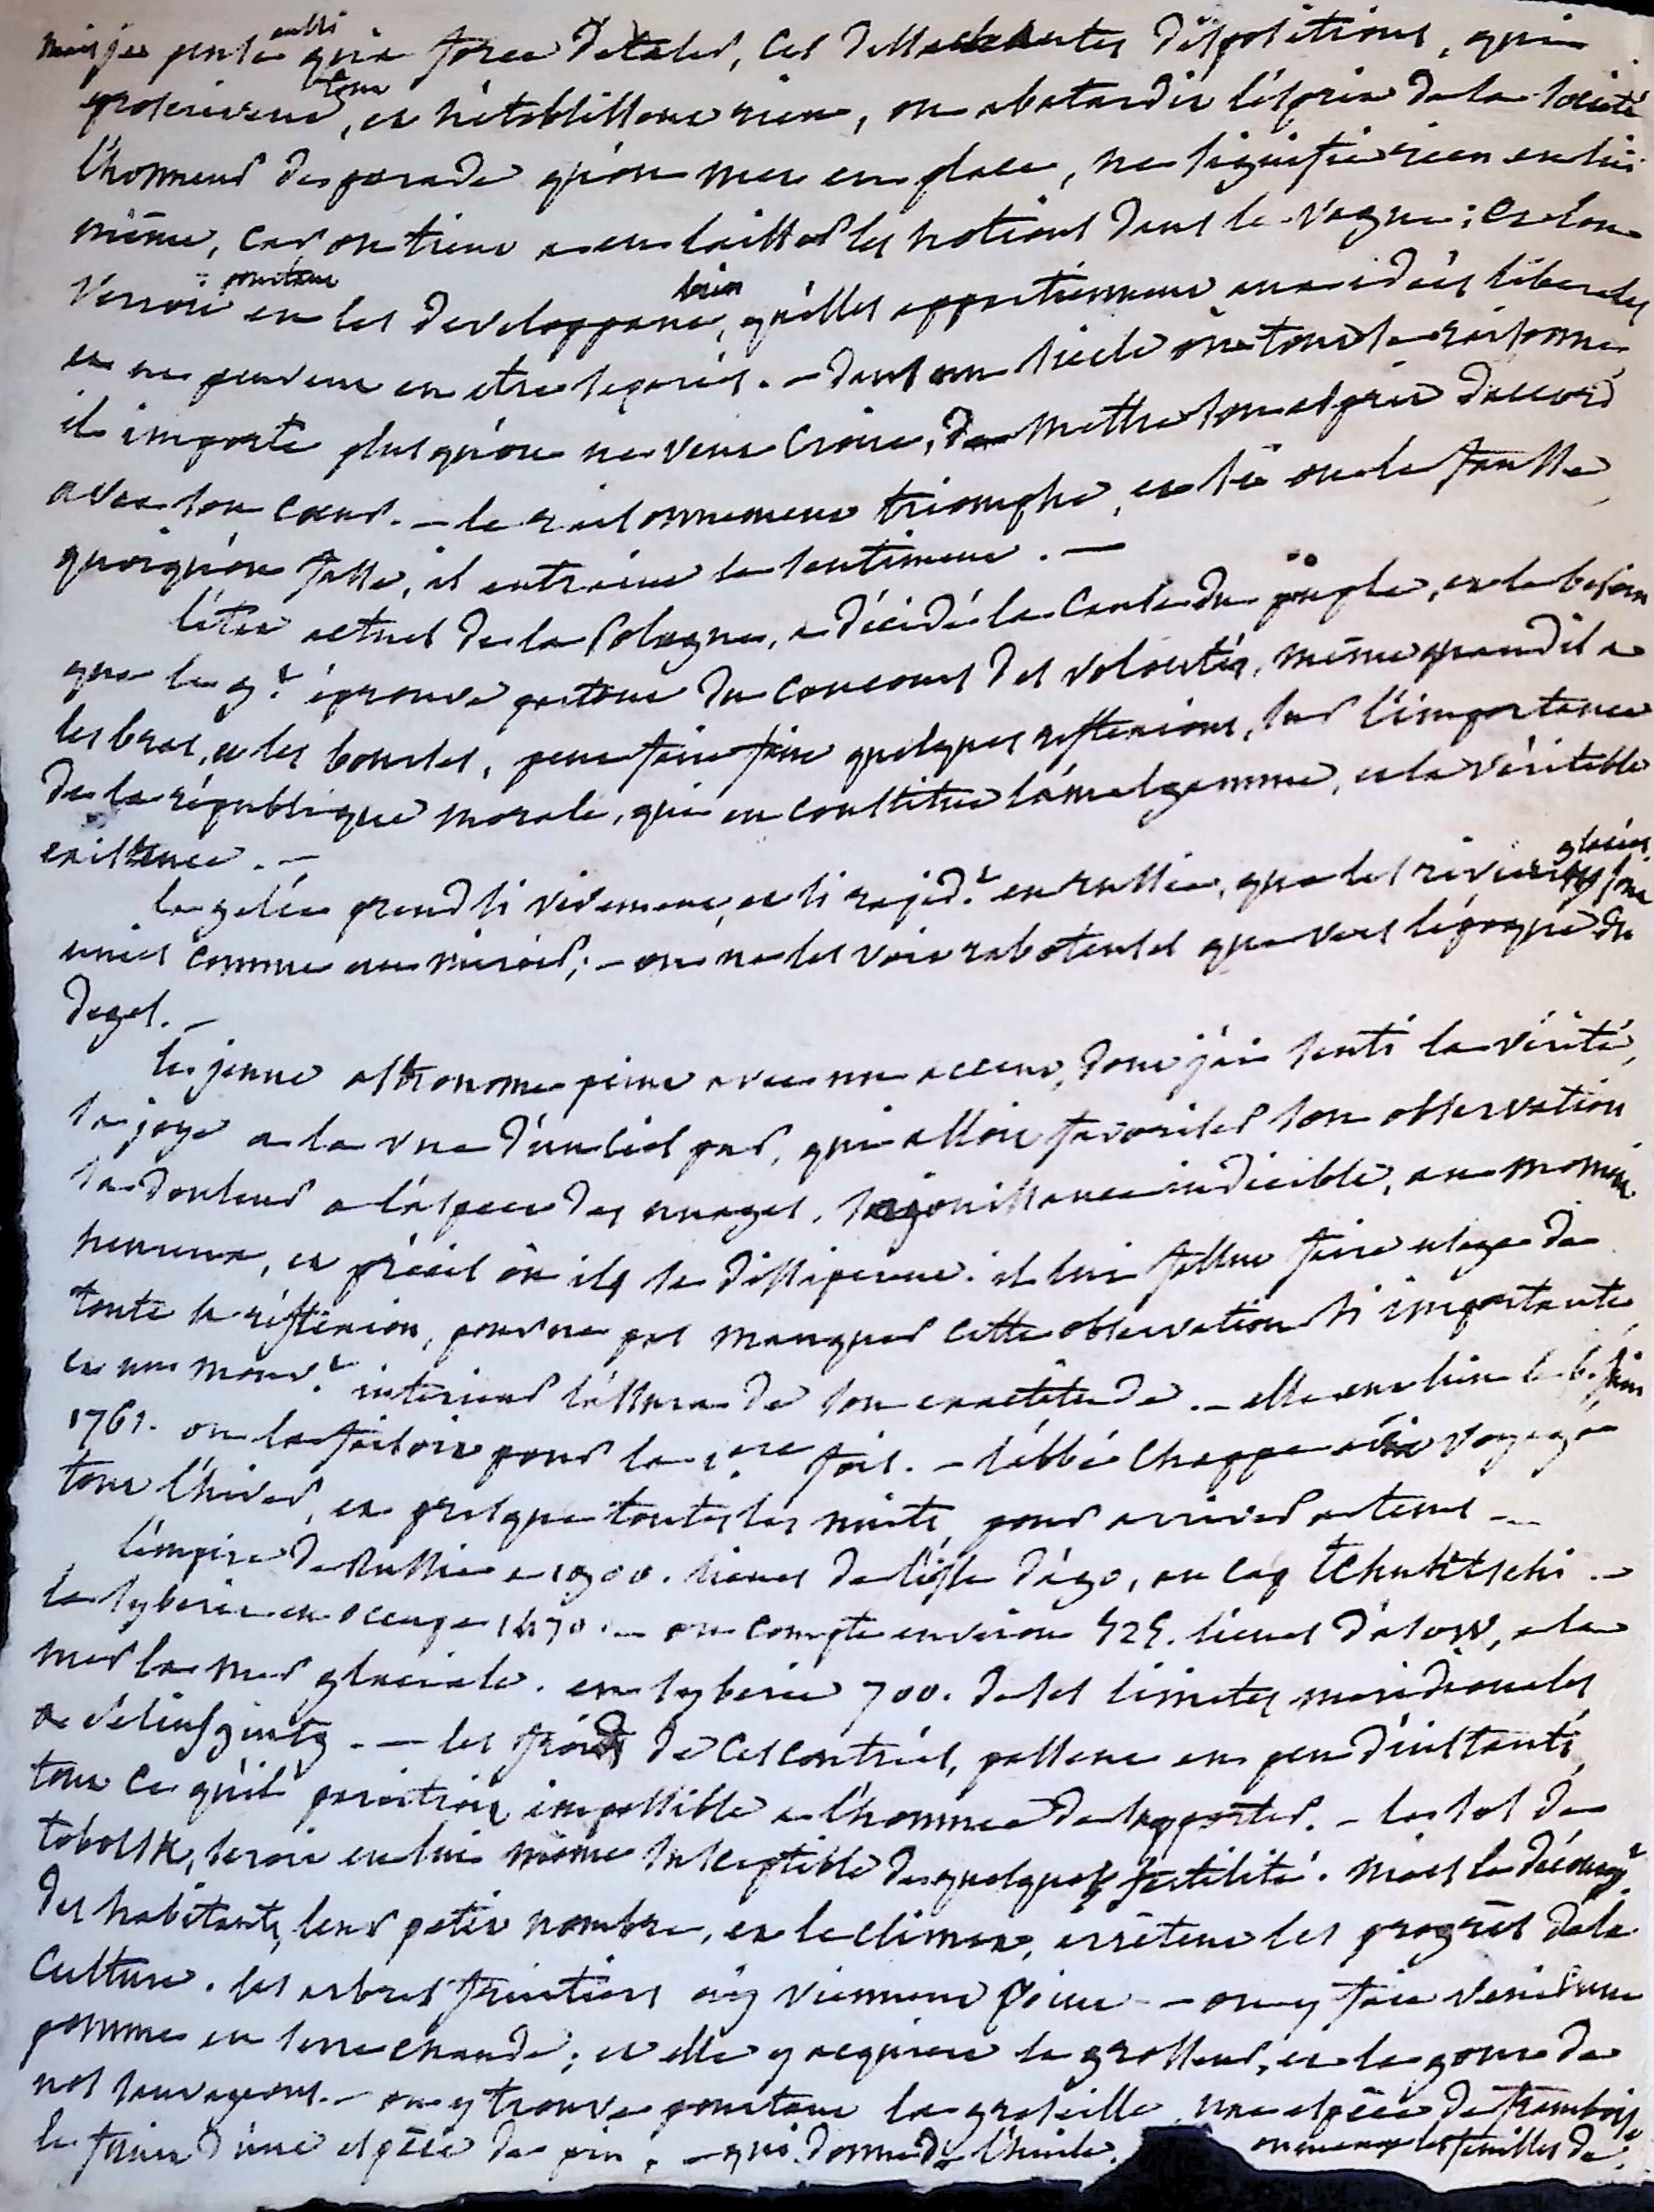 mais je pense aussi qu'a force d'etaler, ces dessechantes dispositions, qui
proscrivent tout, et n'etablissent rien, on abatardit l'esprit de la société
l'honneur de parade qu'on met en place, ne signifie rien en lui
même, car on tient a en laisser les notions dans le vague; et l'on
verroit pourtant en les developpant, qu'elles appartiennent bien aux idées liberales
et ne peuvent en etre separées. – dans un siecle où tout se raisonne,
il importe plus qu'on ne veut croire, de mettre son esprit d'accord
avec son cœur. – le raisonnement triomphe, et si on le fausse,
quoiqu'on fasse, il entraine le sentiment. –
l'état actuel de la Pologne, a décidé la cause du peuple, et le besoin
que le g.t éprouve partout du concours des volontés, même quand il a
les bras, et les bourses, peut faire faire quelques reflexions, sur l'importance
de la république morale, qui en constitue l'amalgamme, et la véritable
existence. –
la gelée prend si vivement, et si rapid.t en russie, que les rivieres glacées sont
unies comme un miroir; – on ne les voit raboteuses que vers l'époque du
degel. –
le jeune astronome peint avec un accent, dont j'ai senti la vérité,
sa joye a la vue d'un ciel pur, qui alloit favoriser son observation
sa douleur a l'aspect des nuages, sa jouissance indicible, au moment
heureux, et précis où ils se dissiperent. il lui fallut faire usage de
toute sa réflexion, pour ne pas manquer cette observation si importante,
et un mouv.t interieur l'assura de son exactitude. – elle eut lieu le 6. juin
1761. on la faisoit pour la 1.ere fois. – l'abbé Chappe avoit voyagé
tout l'hiver, et presque toutes les nuits, pour arriver a tems –
l'empire de Russie a 1900. lieues de l'isle d'ago, au cap tchuktschi –
la syberie en occupe 1470. – on compte environ 525. lieues d'asow, a la
mer la mer glaciale. en syberie 700. de ses limites meridionales
a Selinsginty. – les froids de ces contrées, passent en peu d'instants,
tout ce qu'il paroitroit impossible a l'homme de supporter. – le sol de
tobolsk, seroit en lui même susceptible de quelque fertilité. mais le décourag.t
des habitants, leur petit nombre, et le climat, arrêtent les progrès de la
culture. les arbres fruitiers n'y viennent point – on y fait venir une
pomme en serre chaude; et elle y acquiert la grosseur, et le gout de
nos sauvageons. – on y trouve pourtant la groseille, une espèce de framboise
le fruit d'une espèce de pin, – qui donne de l'huile. les feuilles de